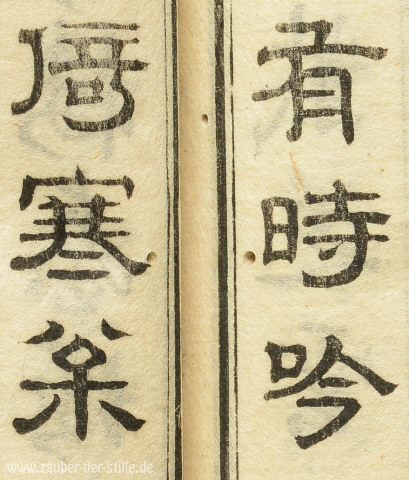 有時吟
倚寒枀
www.zauber-der-stille.de